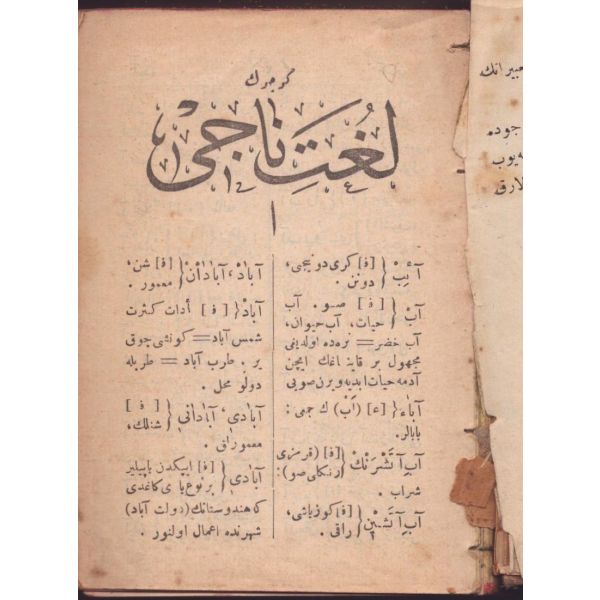 كوچوك
لغتِ ناجى
ا
آئب { [ع] كرى دونيجى،
دونن .
آبْ { [ف] صو . آب
حيات، آب حيوان،
آب خضر = نره‌ده اولديغى
مجهول بر قايناغك ايچن
آدمه حيات ابديه ويرن صويى
آباء { [ع] (اَبْ) ك جمى :
بابالر.
آبِ آتَشْرَنْك { [ف] (قرمزى
رنكلى صو) :
شراب .
آبِ آتَشْيِنْ { [ف] كوزياشى،
راقى .
آبادْ، آبادانْ { [ف] شن،
معمور .
آبادْ { [ف] أدات كثرت
شمس آباد = كونشى چوق
ير . طرب آباد = طربله
دولو محل .
آبادى، آبادانى { [ف]
شنلك،
معمورلق .
آبادى { [ف] ايپكدن ياپيلير
بر نوع ياى كاغدى
كه هندوستانك (دولت آباد)
شهرنده اعمال اولنور .
جوده
يوب
لارق